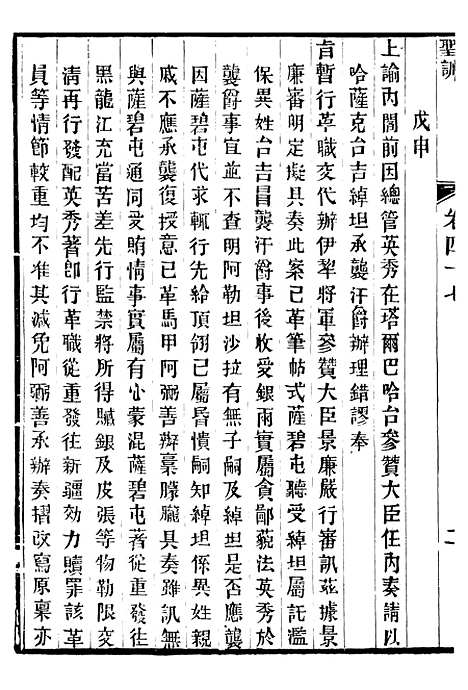 聖訓 卷四十七 二
戊申
上諭內閣前因總管英秀在塔爾巴哈台參贊大臣任內奏請以
哈薩克台吉綽坦承襲汗爵辦理錯謬奉
旨暫行革職交代辦伊犂將軍參贊大臣景廉嚴行審訊茲據景
廉審明定擬具奏此案已革筆帖式薩碧屯聽受綽坦囑託濫
保異姓台吉冒襲汗爵事後收受銀兩實屬貪鄙藐法英秀於
襲爵事宜並不查明阿勒坦沙拉有無子嗣及是否應襲
因薩碧屯代求輒行先給頂翎已屬昏憒嗣知綽坦係異姓親
戚不應承襲復授意已革馬甲阿彌善辦稾朦朧具奏雖訊無
與薩碧屯通同受賄情事實屬有心蒙混薩碧屯著從重發往
黑龍江充當苦差先行監禁將所得贓銀及皮張等物勒限交
淸再行發配英秀著卽行革職從重發往新疆効力贖罪該革
員等情節較重均不准其減免阿彌善承辦奏摺改寫原稟亦